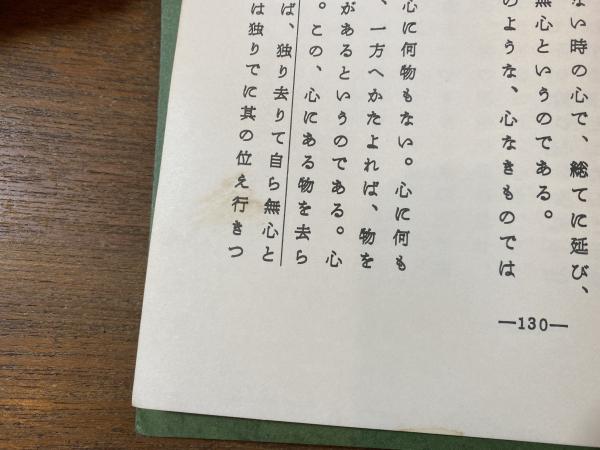 ない時の心で、総てに延び、
無心というのである。
のような、心なきものでは
心に何物もない。心に何も
、一方へかたよれば、物を
があるというのである。心
。この、心にある物を去ら
ば、独り去りて自ら無心と
は独りでに其の位え行きつ
—130—